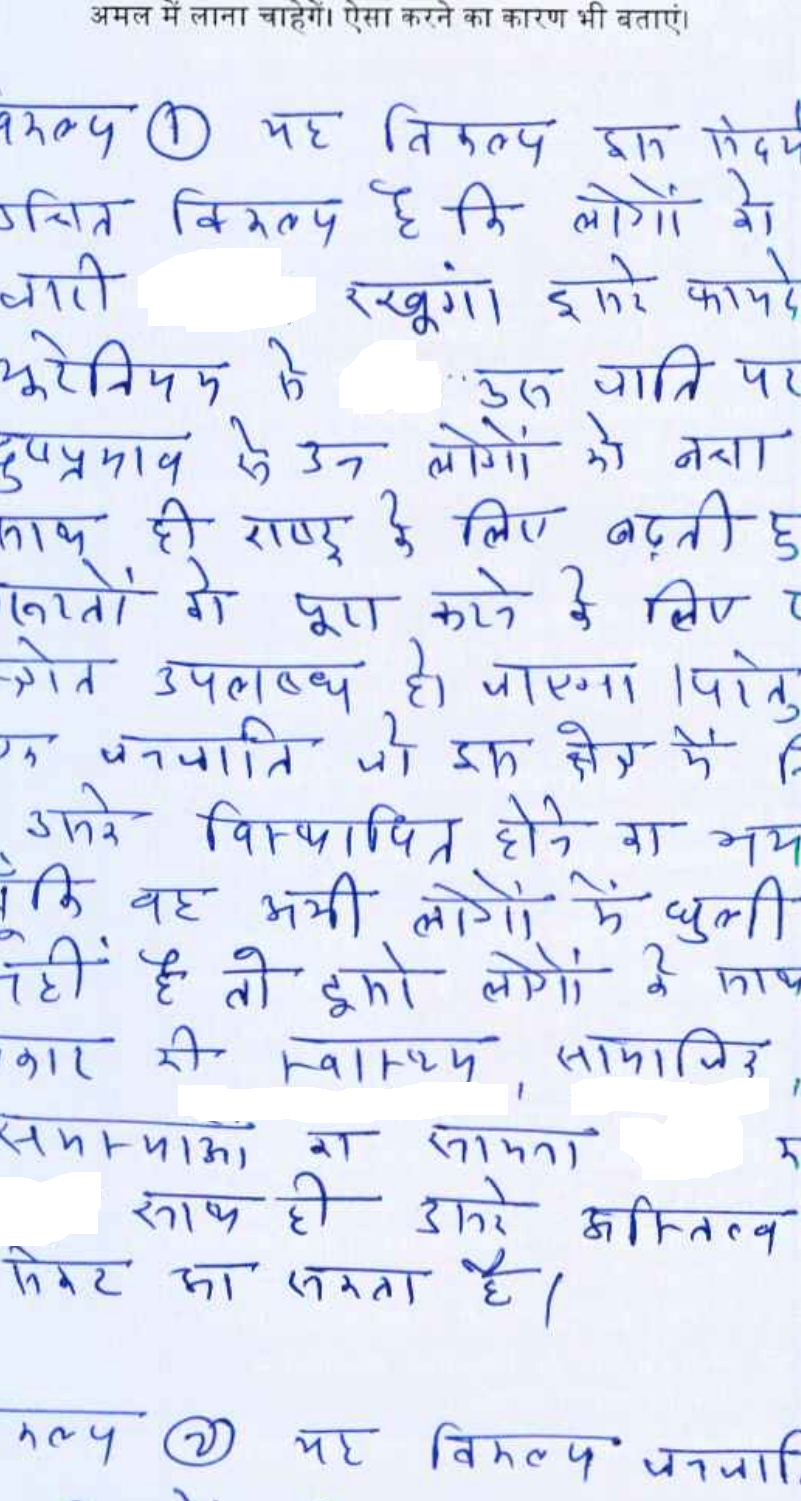 अमल में लाना चाहेगें। ऐसा करने का कारण भी बताएं।
विकल्प ① यह विकल्प इस संदर्भ
उचित विकल्प है कि लोगों को
जारी रखूंगा इसके फायदे
यूरेनियम के उस जाति पर
दुष्प्रभाव से उन लोगों को बचा
साथ ही राष्ट्र के लिए बढ़ती
जरूरतों को पूरा करने के लिए
स्त्रोत उपलब्ध हो जाएगा । परंतु
एक जनजाति जो इस क्षेत्र में
उसके विस्थापित होने का भय
चूँकि वह अभी लोगों में घुली
नहीं है तो दूसरे लोगों के साथ
की स्वास्थ्य, सामाजिक,
समस्याओं का सामना
साथ ही उसके अस्तित्व
संकट आ सकता है।
विकल्प ② यह विकल्प जनजाति